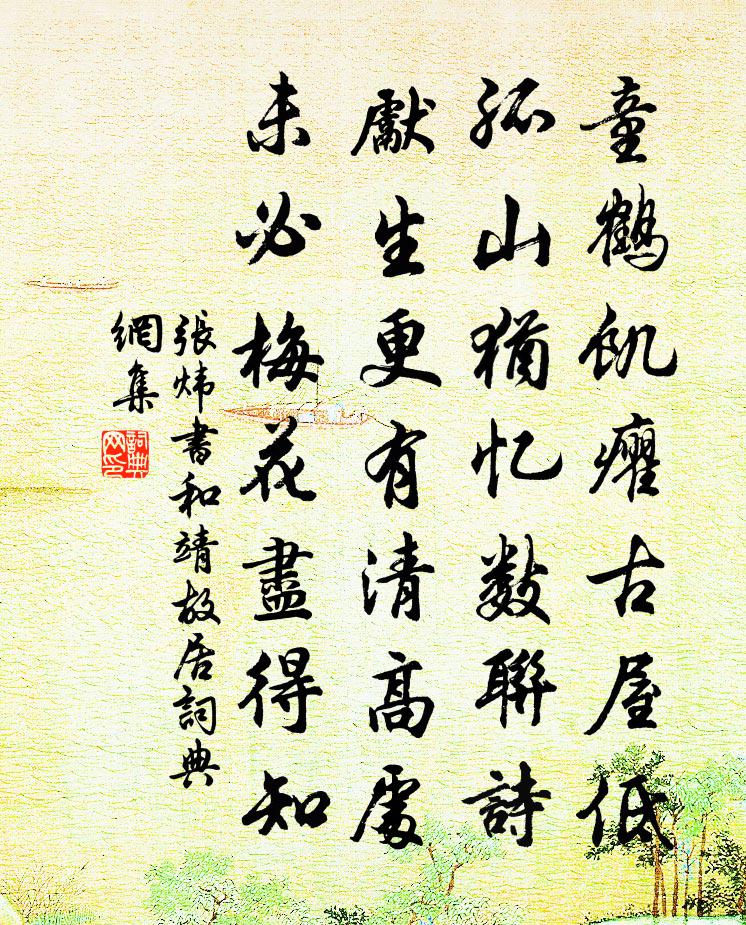 童鶴飢癯古屋低
孤山猶忆数聯詩
獻生更有清高處
未必梅花盡得知
張炜書和靖故居詞典
網集
詞典
网印